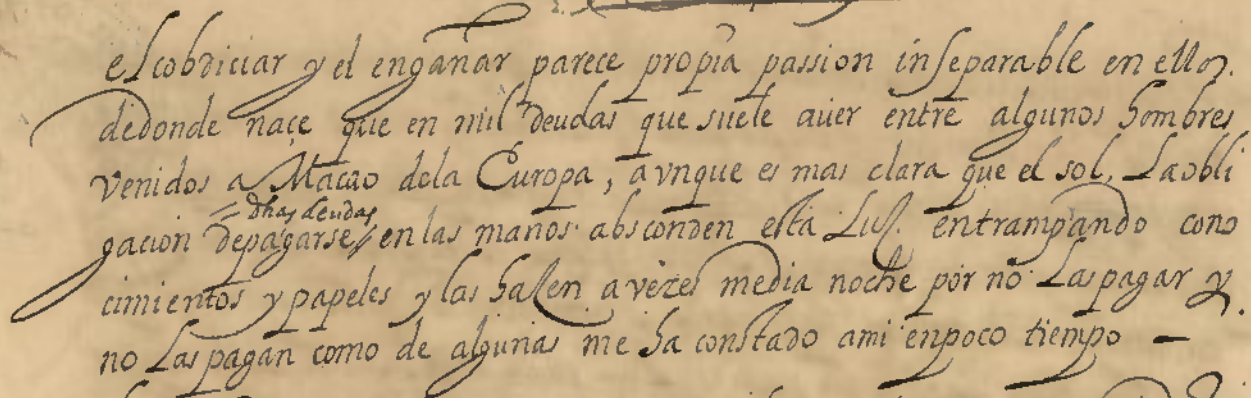 el cobdiciar y el engañar parece propia passion inseparable en ellos.
dedonde naçe que en mil deudas que suele auer entre algunos hombres
venidos a Macao dela Europa, avnque es mas clara que el sol, La obli
dhas deudas
gacion depagarse en las manos absconden esta Luz. entrampando cono
cimientos y papeles y las hazen a vezes media noche por no Las pagar y
no Las pagan como de algunas me ha constado ami enpoco tiempo —